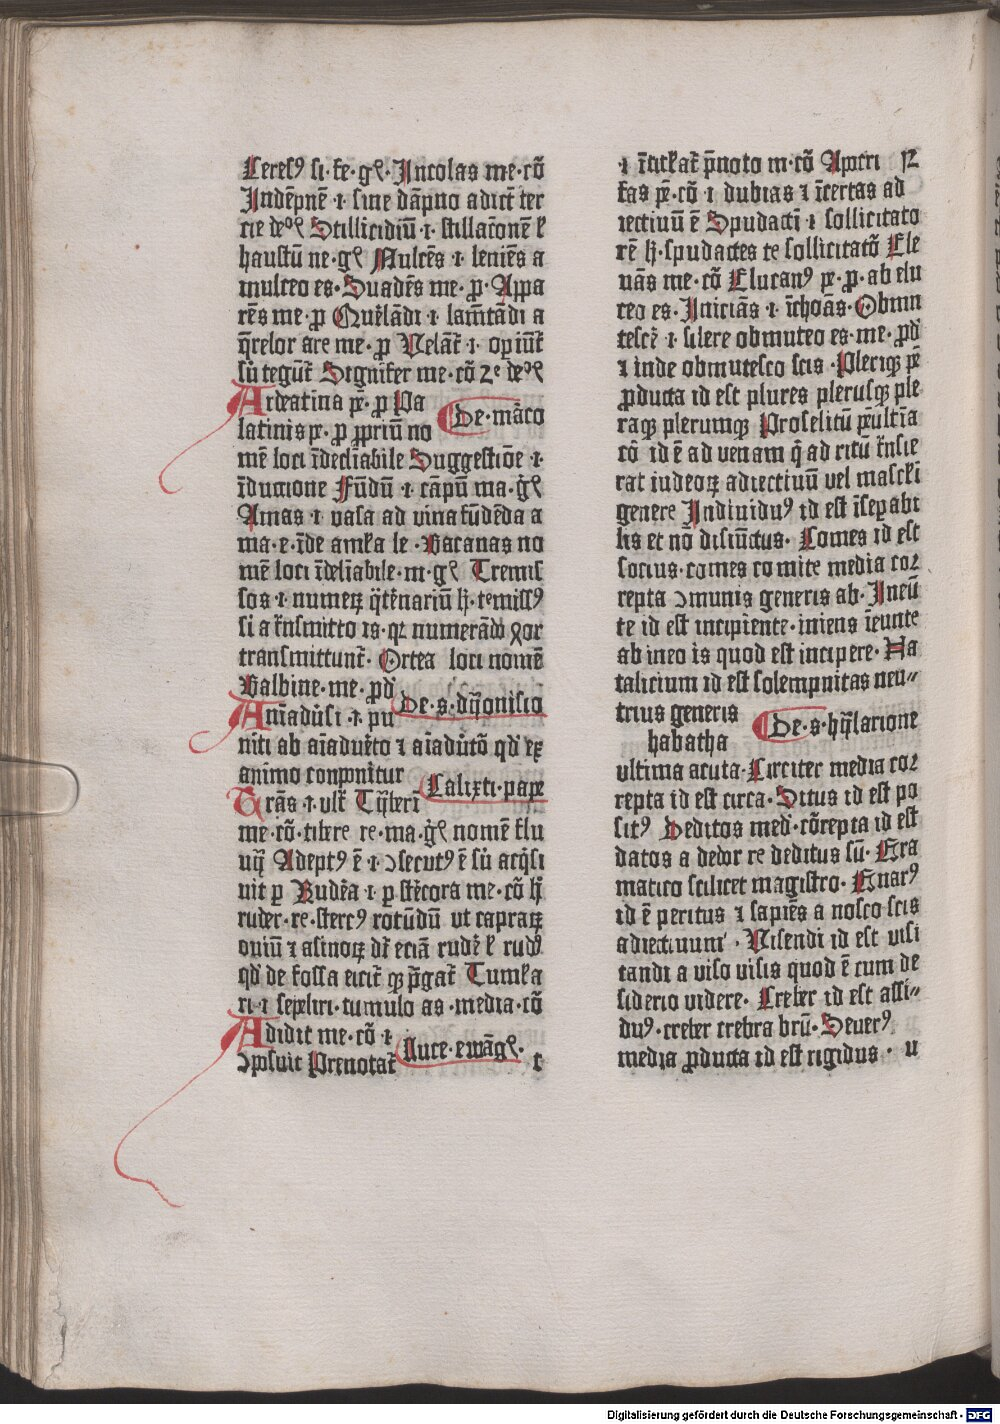 Ceresꝰ si·fe·gꝭ·Incolas me·cō
Indēpnē·i·sine dāpno adict̄ ter
cie deoꝝ Stillicidiū·i·stillac̄onē ł
haustū ne·gꝭ Mulcēs·i·leniēs a
mulceo es·Suadēs me·ꝓ·Appa
rēs me·ꝓ Querlādi·i·lam̄tādi a
q̄relor are me·ꝓ Velāt̄·i·opiūt̄
sū tegūt̄ Signifer me·cō 2e deoꝝ
Ardeatina pe·ꝓ Pa
De·marco
latinis p·ꝓ ꝓpriū no
mē loci īdecliabile Suggestiōe·i·
īductione Fūdū·i·cāpū ma·gꝭ
Amas·i·vasa ad vina fūdēda a
ma·e·īde amka le·Bacanas no
mē loci īdeliabile·m·gꝭ Tremis
sos·i·numeꝝ q̄ternariū hꝫ·temissꝰ
si a trnsmitto is·qꝛ numerādo ꝓor
transmittunt̄·Ortea loci nomē
Balbine·me·pd
De·s·dyonisio
Aniadūsi·i·pu
niti ab aīaduerto ⁊ aīadūtō qd ex
animo conponitur
Calixti·pape
Trās·i·ult̄ Tyberī
me·cō·tibere re·ma·gꝭ nomē flu
uij Adeptꝰ ē·i·ↄsecutꝰ ē sū acq̄si
uit p Rudēa·i·p stercora me·cō hꝫ
ruder·re·stercꝰ rotūdū ut capraꝝ
ouiū ⁊ asinoꝝ dr̄ eciā rudē ł rudꝰ
qd de fossa eicit̄ qꝫ p̄gat̄ Tumka
ri·i·sepeliri·tumulo as·media·cō
Adidit me·cō·i·
Luce·ewāgꝭ·
ↄpsuit Prenotat̄ t
·i·ītitkat̄ p̄noto m·cō Aperi ꝛ
kas pe·cō·i·dubias ⁊ īcertas ad
iectiuū ē Spudacti·i·sollicitato
rē hꝫ·spudactes te sollicitatō Ele
uās me·cō Elucanꝰ pe·ꝓ·ab elu
ceo es·Iniciās·i·īchoās·Obmu
tescē·i·silere obmuteo es·me·pd
⁊ inde obmutesco scis·Pleriqꝫ pe
ꝓducta id est plures plerusqꝫ ple
raqꝫ plerumqꝫ Proselitū peultia
cō id ē ad venam q̄ ad ritū trnsie
rat iudeoꝝ adiectiuū vel mascłi
genere Indiuiduꝰ id est īsepabi
lis et nō disiūctus·Comes id est
socius·comes comite media cor
repta ↄmunis generis ab·Ineū
te id est incipiente·iniens īeunte
ab ineo is quod est incipere·Na
talicium id est solempnitas neu
trius generis
De·s·hylarione
habatha
ultima acuta·Circiter media cor
repta id est circa·Situs id est po
sitꝰ Deditos med·cōrepta id est
datos a dedor re deditus sū·Gra
matico scilicet magistro·Gnarꝰ
id ē peritus ⁊ sapiēs a nosco scis
adiectiuum·Visendi id est visi
tandi a viso visis quod ē cum de
siderio videre·Creber id est assi
duꝰ·creber crebra brū·Seuerꝰ
media ꝓducta id est rigidus·u
Digitalisierung gefördert durch die Deutsche Forschungsgemeinschaft - DFG